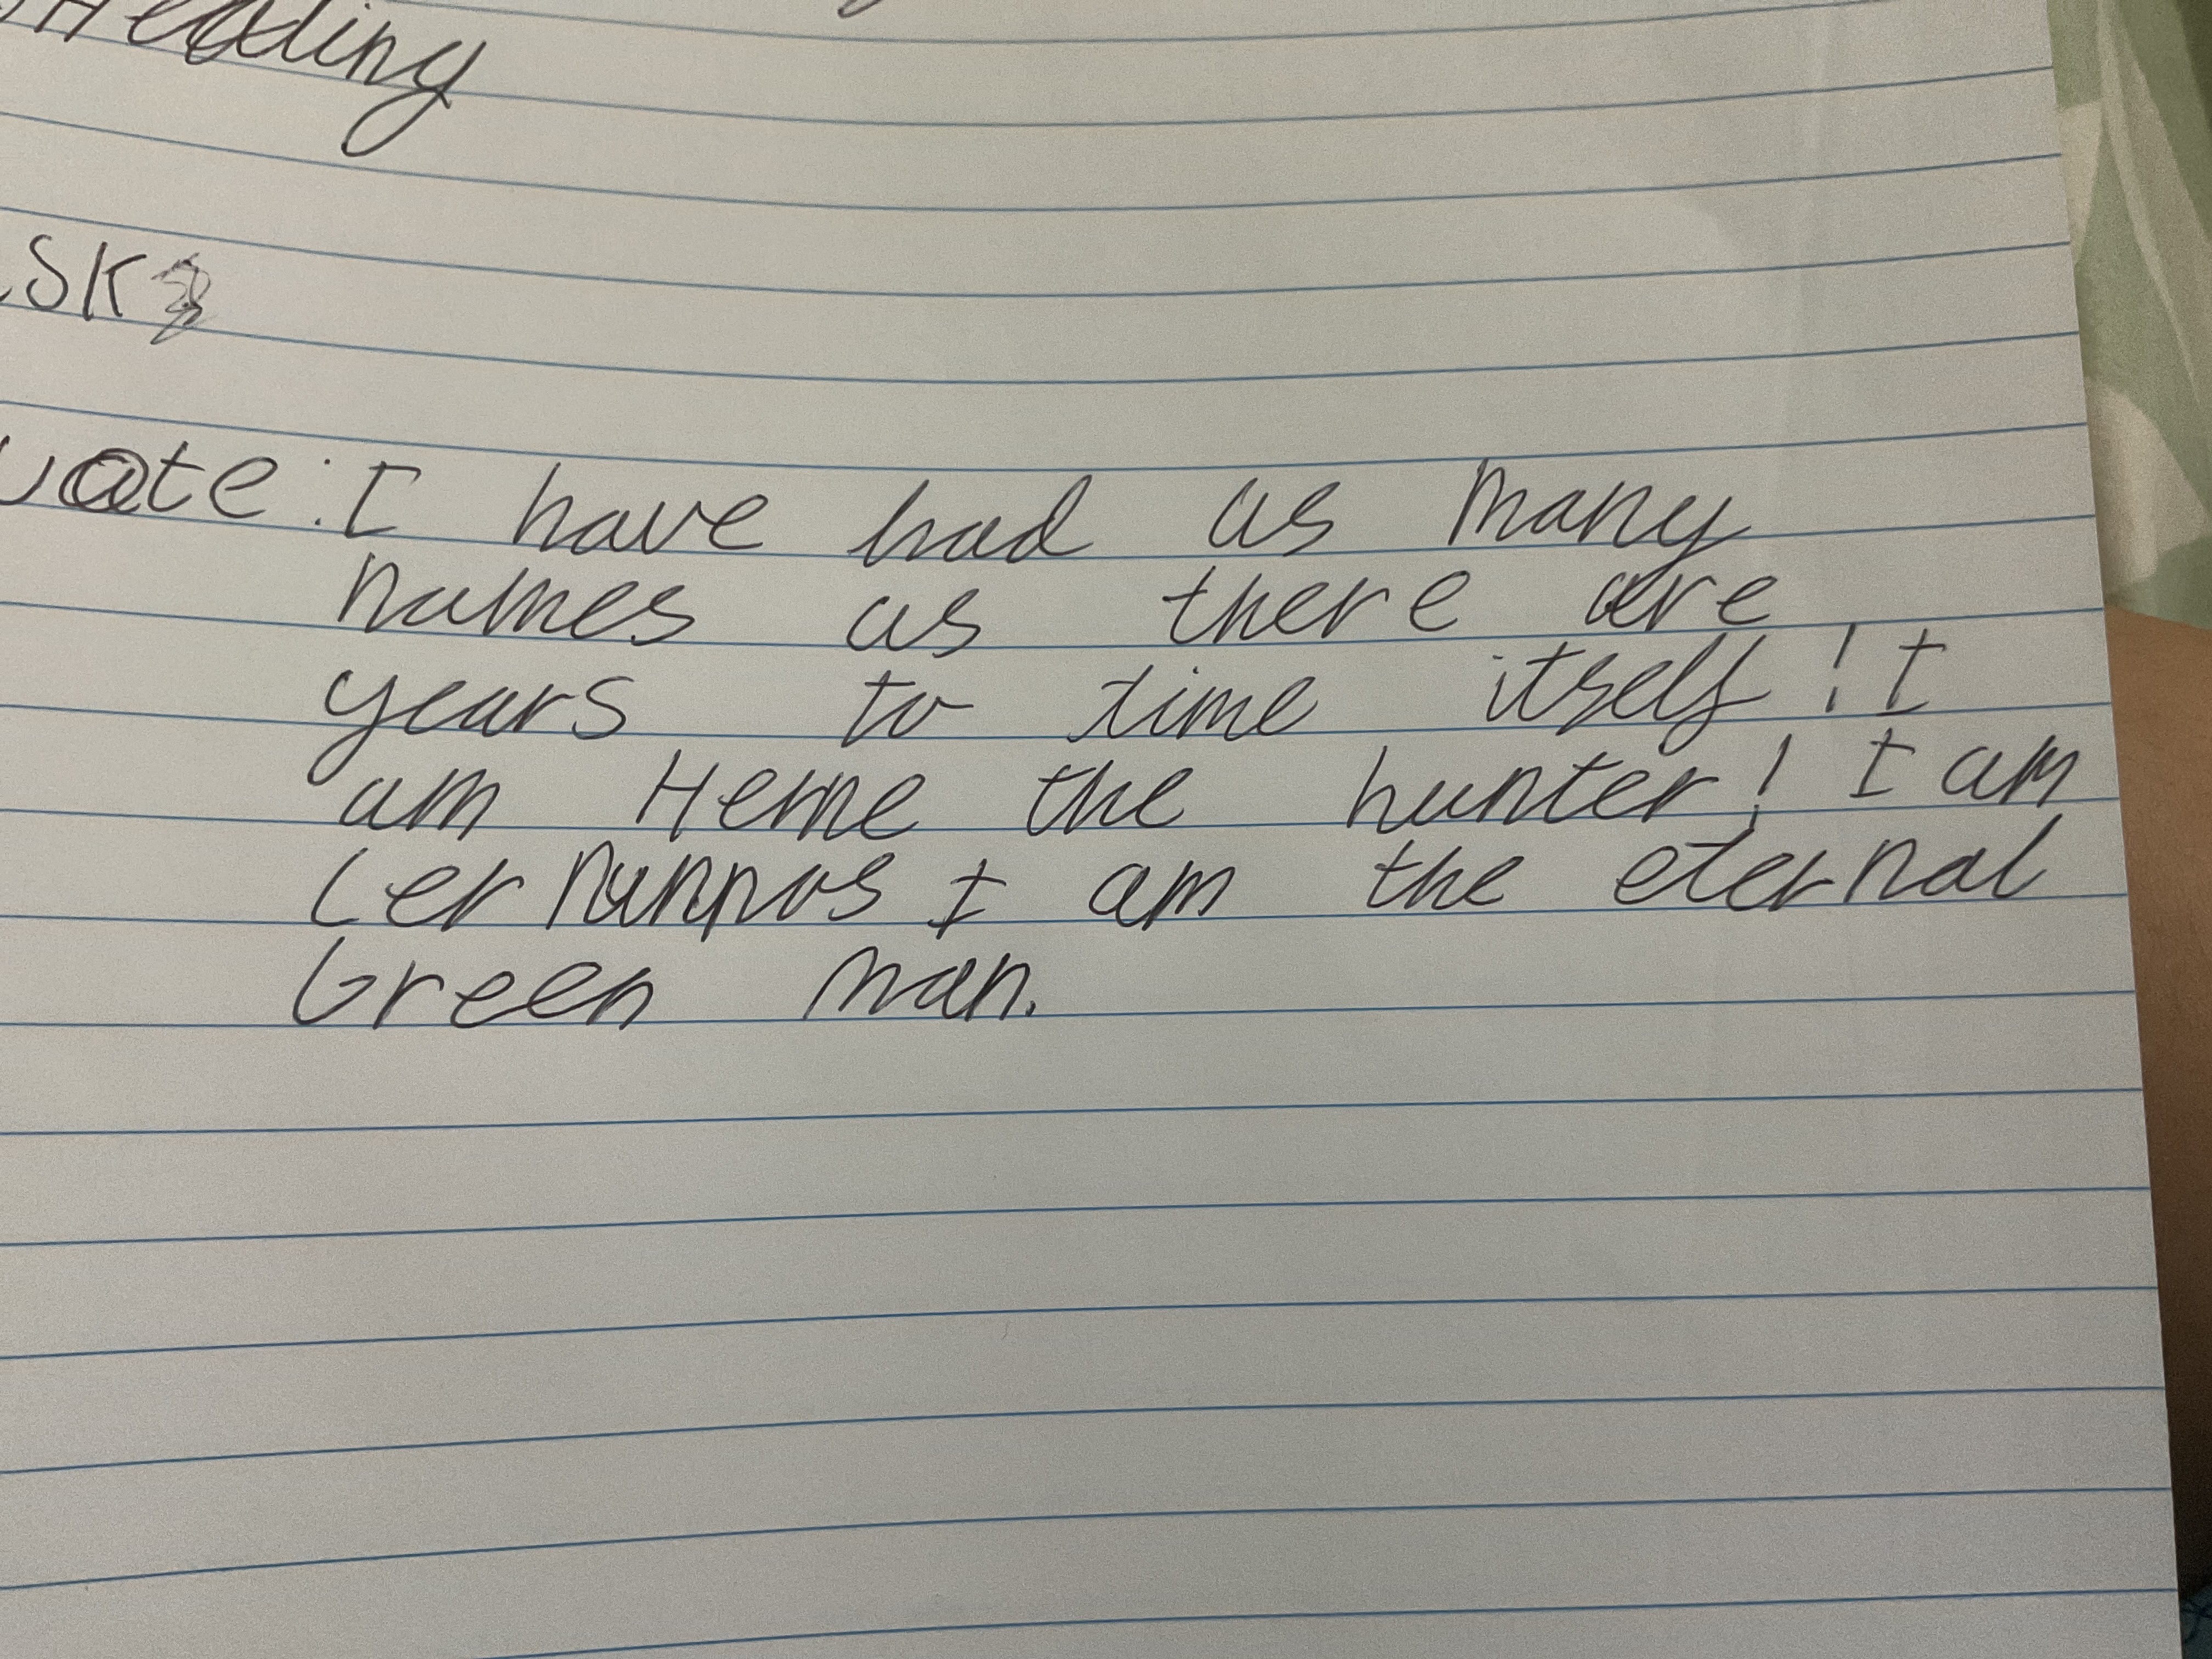 Heading
SK
uote: I have had as many
names as there are
years to time itself! I
am Herne the hunter! I am
Cernunnos I am the eternal
Green man.